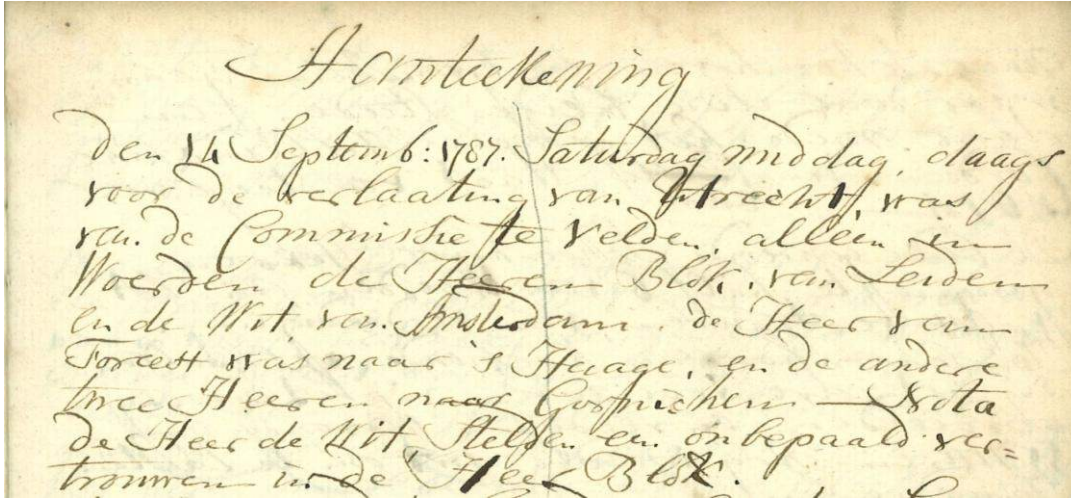 Aanteekening
den 14 Septemb: 1787. Saturdag middag, daags
voor de verlaating van Utrecht, was
van de Commissie te Velden, alleen in
Woerden de Heeren Blok, van Leiden
en de Wit van Amsterdam. de Heer van
Foreest was naar 's Haage, en de andere
twee Heeren naar Gornichem — Nota
de Heer de Wit stelden een onbepaald ver=
trouwen in de Heer Blok.